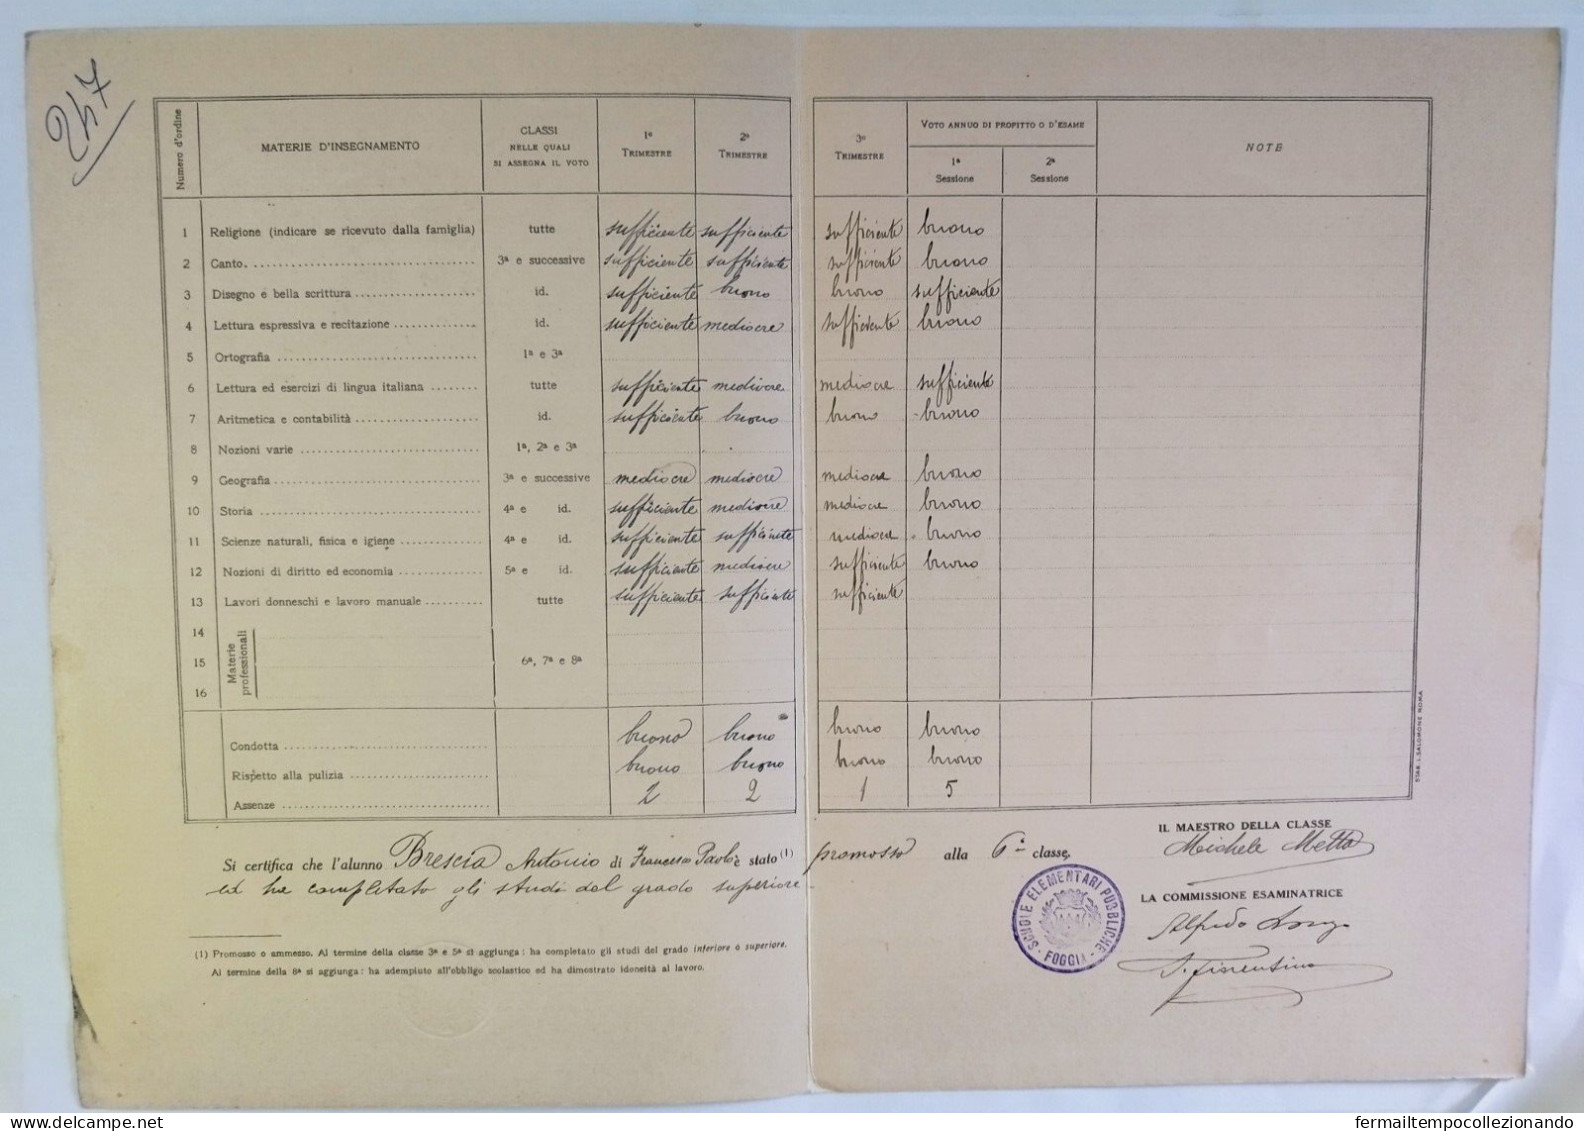 247
Numero d'ordine
MATERIE D'INSEGNAMENTO
CLASSI
NELLE QUALI
SI ASSEGNA IL VOTO
1º
TRIMESTRE
2º
TRIMESTRE
3º
TRIMESTRE
VOTO ANNUO DI PROFITTO O D'ESAME
1ª
Sessione
2ª
Sessione
NOTE
1 Religione (indicare se ricevuto dalla famiglia) tutte sufficiente sufficiente sufficiente buono
2 Canto 3ª e successive sufficiente sufficiente sufficiente buono
3 Disegno e bella scrittura id. sufficiente buono buono sufficiente
4 Lettura espressiva e recitazione id. sufficiente mediocre sufficiente buono
5 Ortografia 1ª e 3ª
6 Lettura ed esercizi di lingua italiana tutte sufficiente mediocre mediocre sufficiente
7 Aritmetica e contabilità id. sufficiente buono buono buono
8 Nozioni varie 1ª, 2ª e 3ª
9 Geografia 3ª e successive mediocre mediocre mediocre buono
10 Storia 4ª e id. sufficiente mediocre mediocre buono
11 Scienze naturali, fisica e igiene 4ª e id. sufficiente sufficiente mediocre buono
12 Nozioni di diritto ed economia 5ª e id. sufficiente mediocre sufficiente buono
13 Lavori donneschi e lavoro manuale tutte sufficiente sufficiente sufficiente
14
15 Materie professionali 6ª, 7ª e 8ª
16
Condotta buono buono buono buono
Rispetto alla pulizia buono buono buono buono
Assenze 2 2 1 5
STAB. L. SALOMONE ROMA
Si certifica che l'alunno Brescia Antonio di Francesco Paolo è stato (1) promosso alla 6ª classe,
ed ha completato gli studi del grado superiore
(1) Promosso o ammesso. Al termine della classe 3ª e 5ª si aggiunga: ha completato gli studi del grado inferiore o superiore.
Al termine della 8ª si aggiunga: ha adempiuto all'obbligo scolastico ed ha dimostrato idoneità al lavoro.
SCUOLE ELEMENTARI PUBBLICHE - FOGGIA -
IL MAESTRO DELLA CLASSE
Michele Metta
LA COMMISSIONE ESAMINATRICE
Alfredo
Fiorentino
www.delcampe.net
fermailtempocollezionando